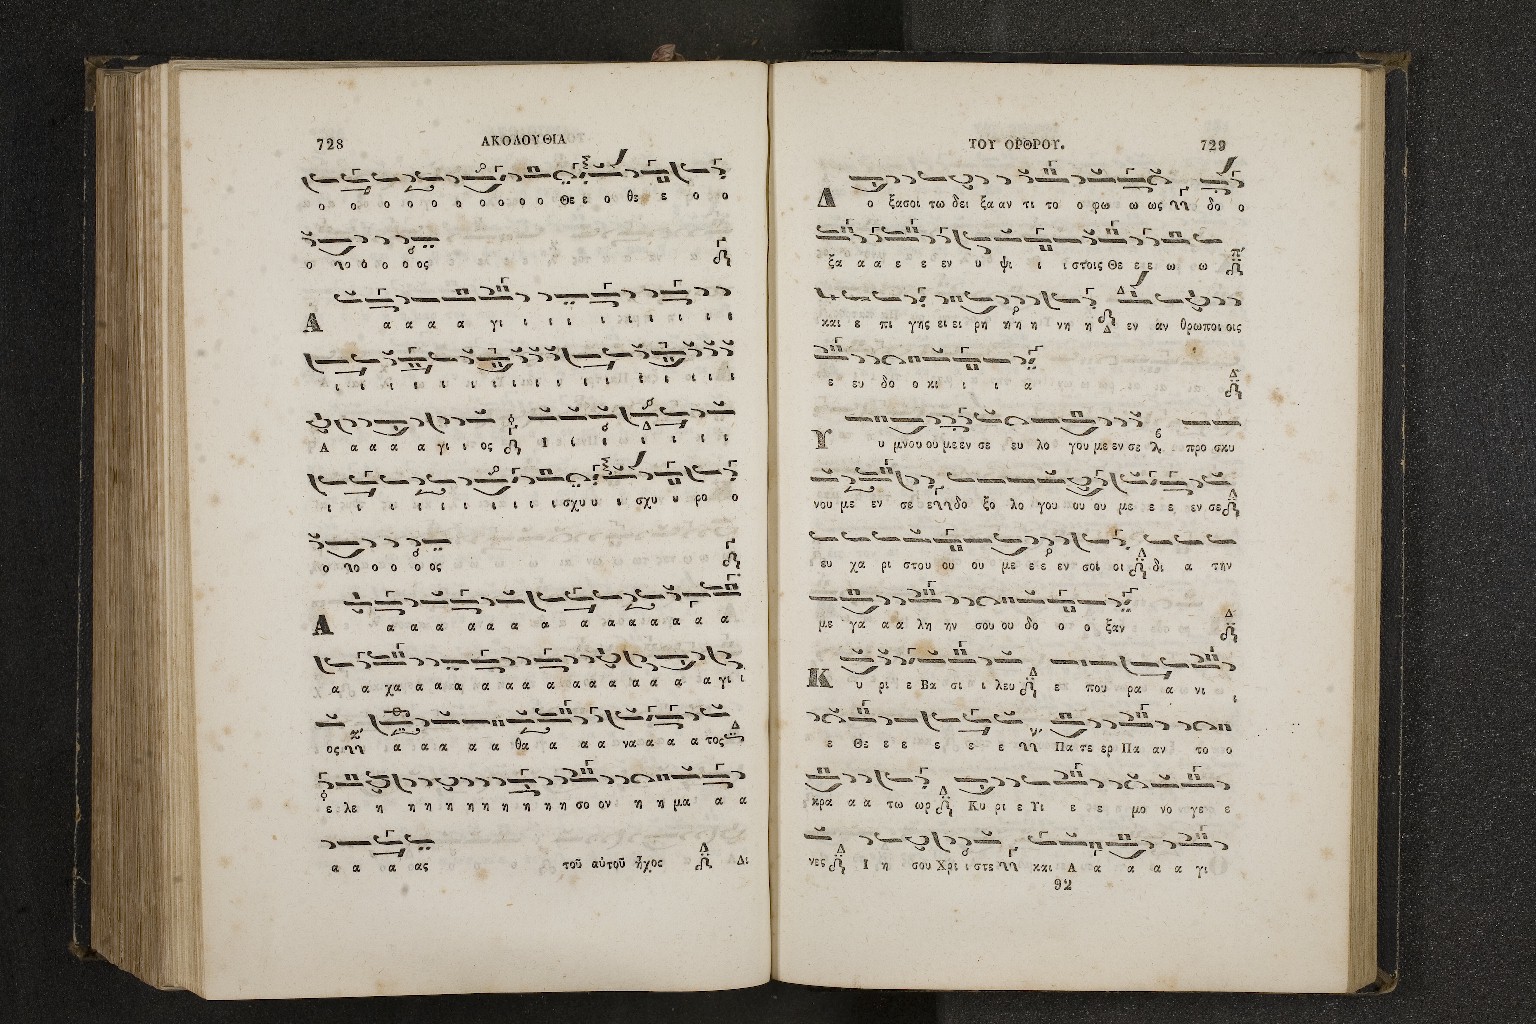 728
ΑΚΟΛΟΥΘΙΑ
ο ο ο ο ο ο ο ο ο ο Θε ε ο θε ε ο ο
ο ο ο ο ος
Α α α α α γι ι ι ι ι ι ι ι ι
ι ι ι ι ι ι ι ι ι ι ι ι ι ι ι
Α α α α α γι ι ος Ι ι ι ι ι ι ι ι
ι ι ι ι ι ι ι ι ι ι σχυ υ ι σχυ υ ρο ο
ο ο ο ο ος
Α α α α α α α α α α α α α α α
α α χα α α α α α α α α α α α α α α α γι ι
ος α α α α α θα α α α να α α α τος
ε λε η η η η η η η η η η σο ον η η μα α α
α α α ας
τοῦ αὐτοῦ ἦχος Δι
ΤΟΥ ΟΡΘΡΟΥ.
729
Δ ο ξασοι τω δει ξα αν τι το ο ρω ω ως δο ο
ξα α α ε ε εν υ ψι ι ι στοις Θε ε ε ω ω
και ε πι γης ει ει ρη η η η νη η εν αν θρωποι οις
ε ευ δο ο κι ι ι α
Υ υ μνου ου με εν σε ευ λο γου με εν σε προ σκυ
νου με εν σε ε δο ξο λο γου ου ου με ε ε εν σε
ευ χα ρι στου ου ου με ε ε εν σοι οι δι α την
με γα α α λη ην σου ου δο ο ο ξαν
Κ υ ρι ε Βα σι ι λευ ε που ρα α νι
ε Θε ε ε ε ε ε Πα τε ερ Πα αν το ο
κρα α α τω ωρ Κυ ρι ε Υι ε ε μο νο γε ε
νες Ι η σου Χρι ι στε και Α α α α α γι
92